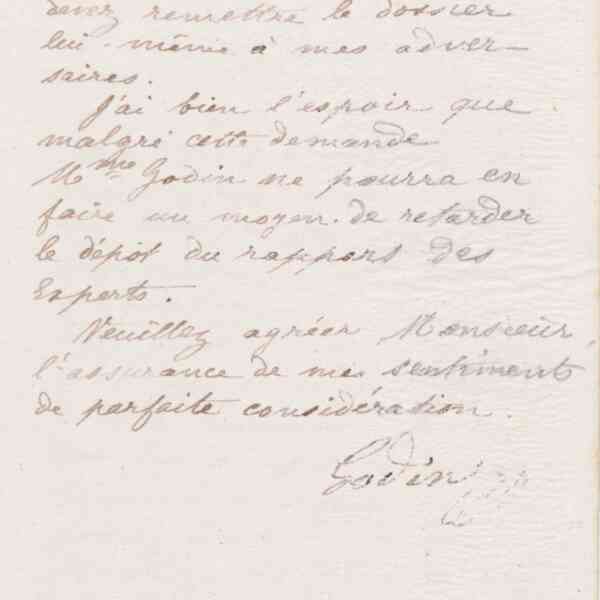 devez remettre le dossier
lui-même à mes adver-
saires.
J'ai bien l'espoir que
malgré cette demande
Mme Godin ne pourra en
faire un moyen de retarder
le dépôt du rapport des
Experts.
Veuillez agréer Monsieur,
l'assurance de mes sentiments
de parfaite considération.
Godin